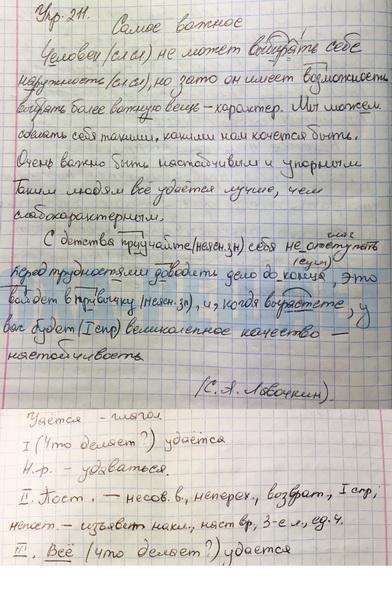 Упр. 211.
Самое важное
Человек (сл сл) не может выбирать себе
наружность (сл сл), но зато он имеет возможность
выбрать более важную вещь – характер. Мы можем
сделать себя такими, какими нам хочется быть.
Очень важно быть настойчивым и упорным
Таким людям всё удаётся лучше, чем
слабохарактерным.
С детства приучайте (неясн. зн) себя не отступать
глаг
перед трудностями доводить дело до конца, это
(сущ)
войдет в привычку (неясн. зн), и, когда вырастете, у
вас будет (I спр) великолепное качество –
настойчивость
(С. А. Лавочкин).
Удаётся – глагол
I (Что делает?) удаётся
Н.ф. – удаваться.
II. Пост. – несов. в., неперех., возврат., I спр,
непост. – изъявит накл., наст вр, 3-е л., ед. ч.
III. Всё (что делает?) удаётся